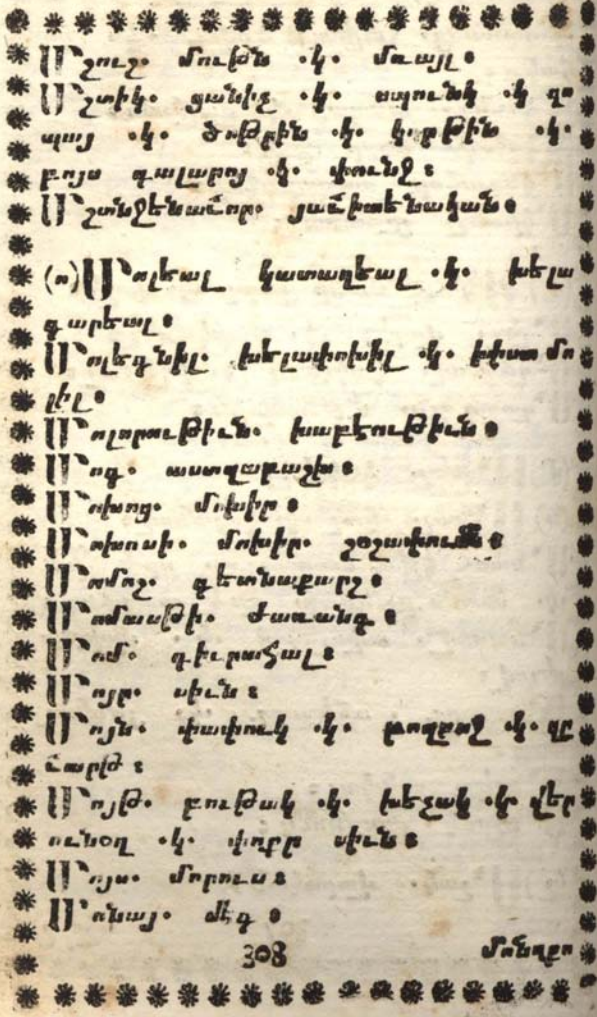 Մշուշ. մութն .կ. մառայլ։
Մշտիկ. ցանիչ .կ. սպունկ .կ զո
պայ .կ. ծոթրին .կ. կորթին .կ.
բոյս գալարոյ .կ. փունջ։
Մշտնջենաւոր. յաւիտենական։
(ո) Մոլեալ կատաղեալ .կ. խելա
գարեալ։
Մոլեգնիլ. խելափոխիլ .կ. խիստ մո
լիլ։
Մոլորութիւն. խաբէութիւն։
Մոգ. աստղաբաշխ։
Մոխոց. մոխիր։
Մոխոսի. մոխիր. շօշափումն։
Մոմոշ. գետնաքարշ։
Մոմասթի. ժառանգ։
Մոմ. գիւրահալ։
Մոյր. սիւն։
Մոյն. փափուկ .կ. թողբոջ .կ. զը
ւարթ։
Մոյթ. բութակ .կ. խեչակ .կ. վեր
ունօղ .կ. փոքր սիւն։
Մոյս. մորուս։
Մոնայ. մէգ։
308 մոնղբո